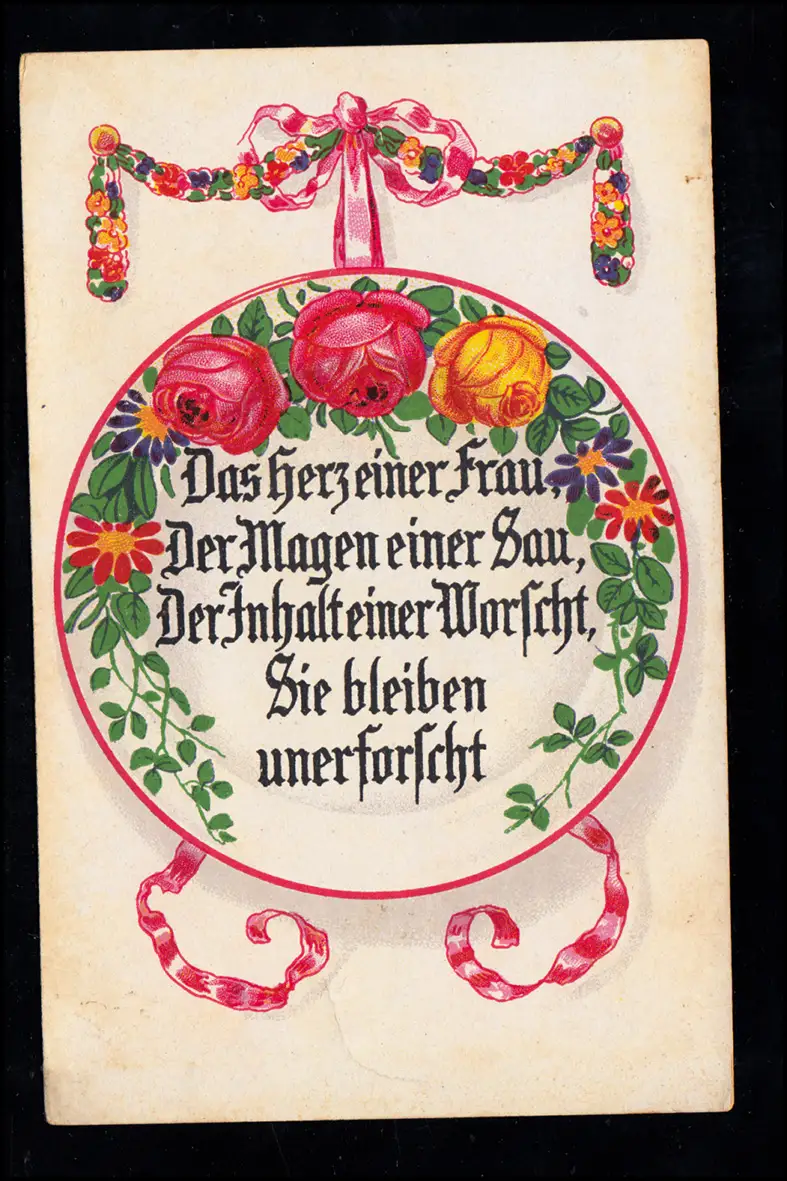 Das Herz einer Frau,
Der Magen einer Sau,
Der Inhalt einer Worscht,
Sie bleiben
unerforscht